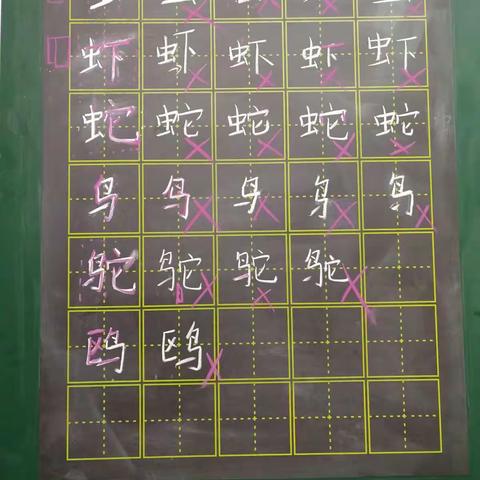 虾虾虾虾虾
蛇蛇蛇蛇蛇
鸟鸟鸟鸟鸟
鸵鸵鸵鸵
鸥鸥